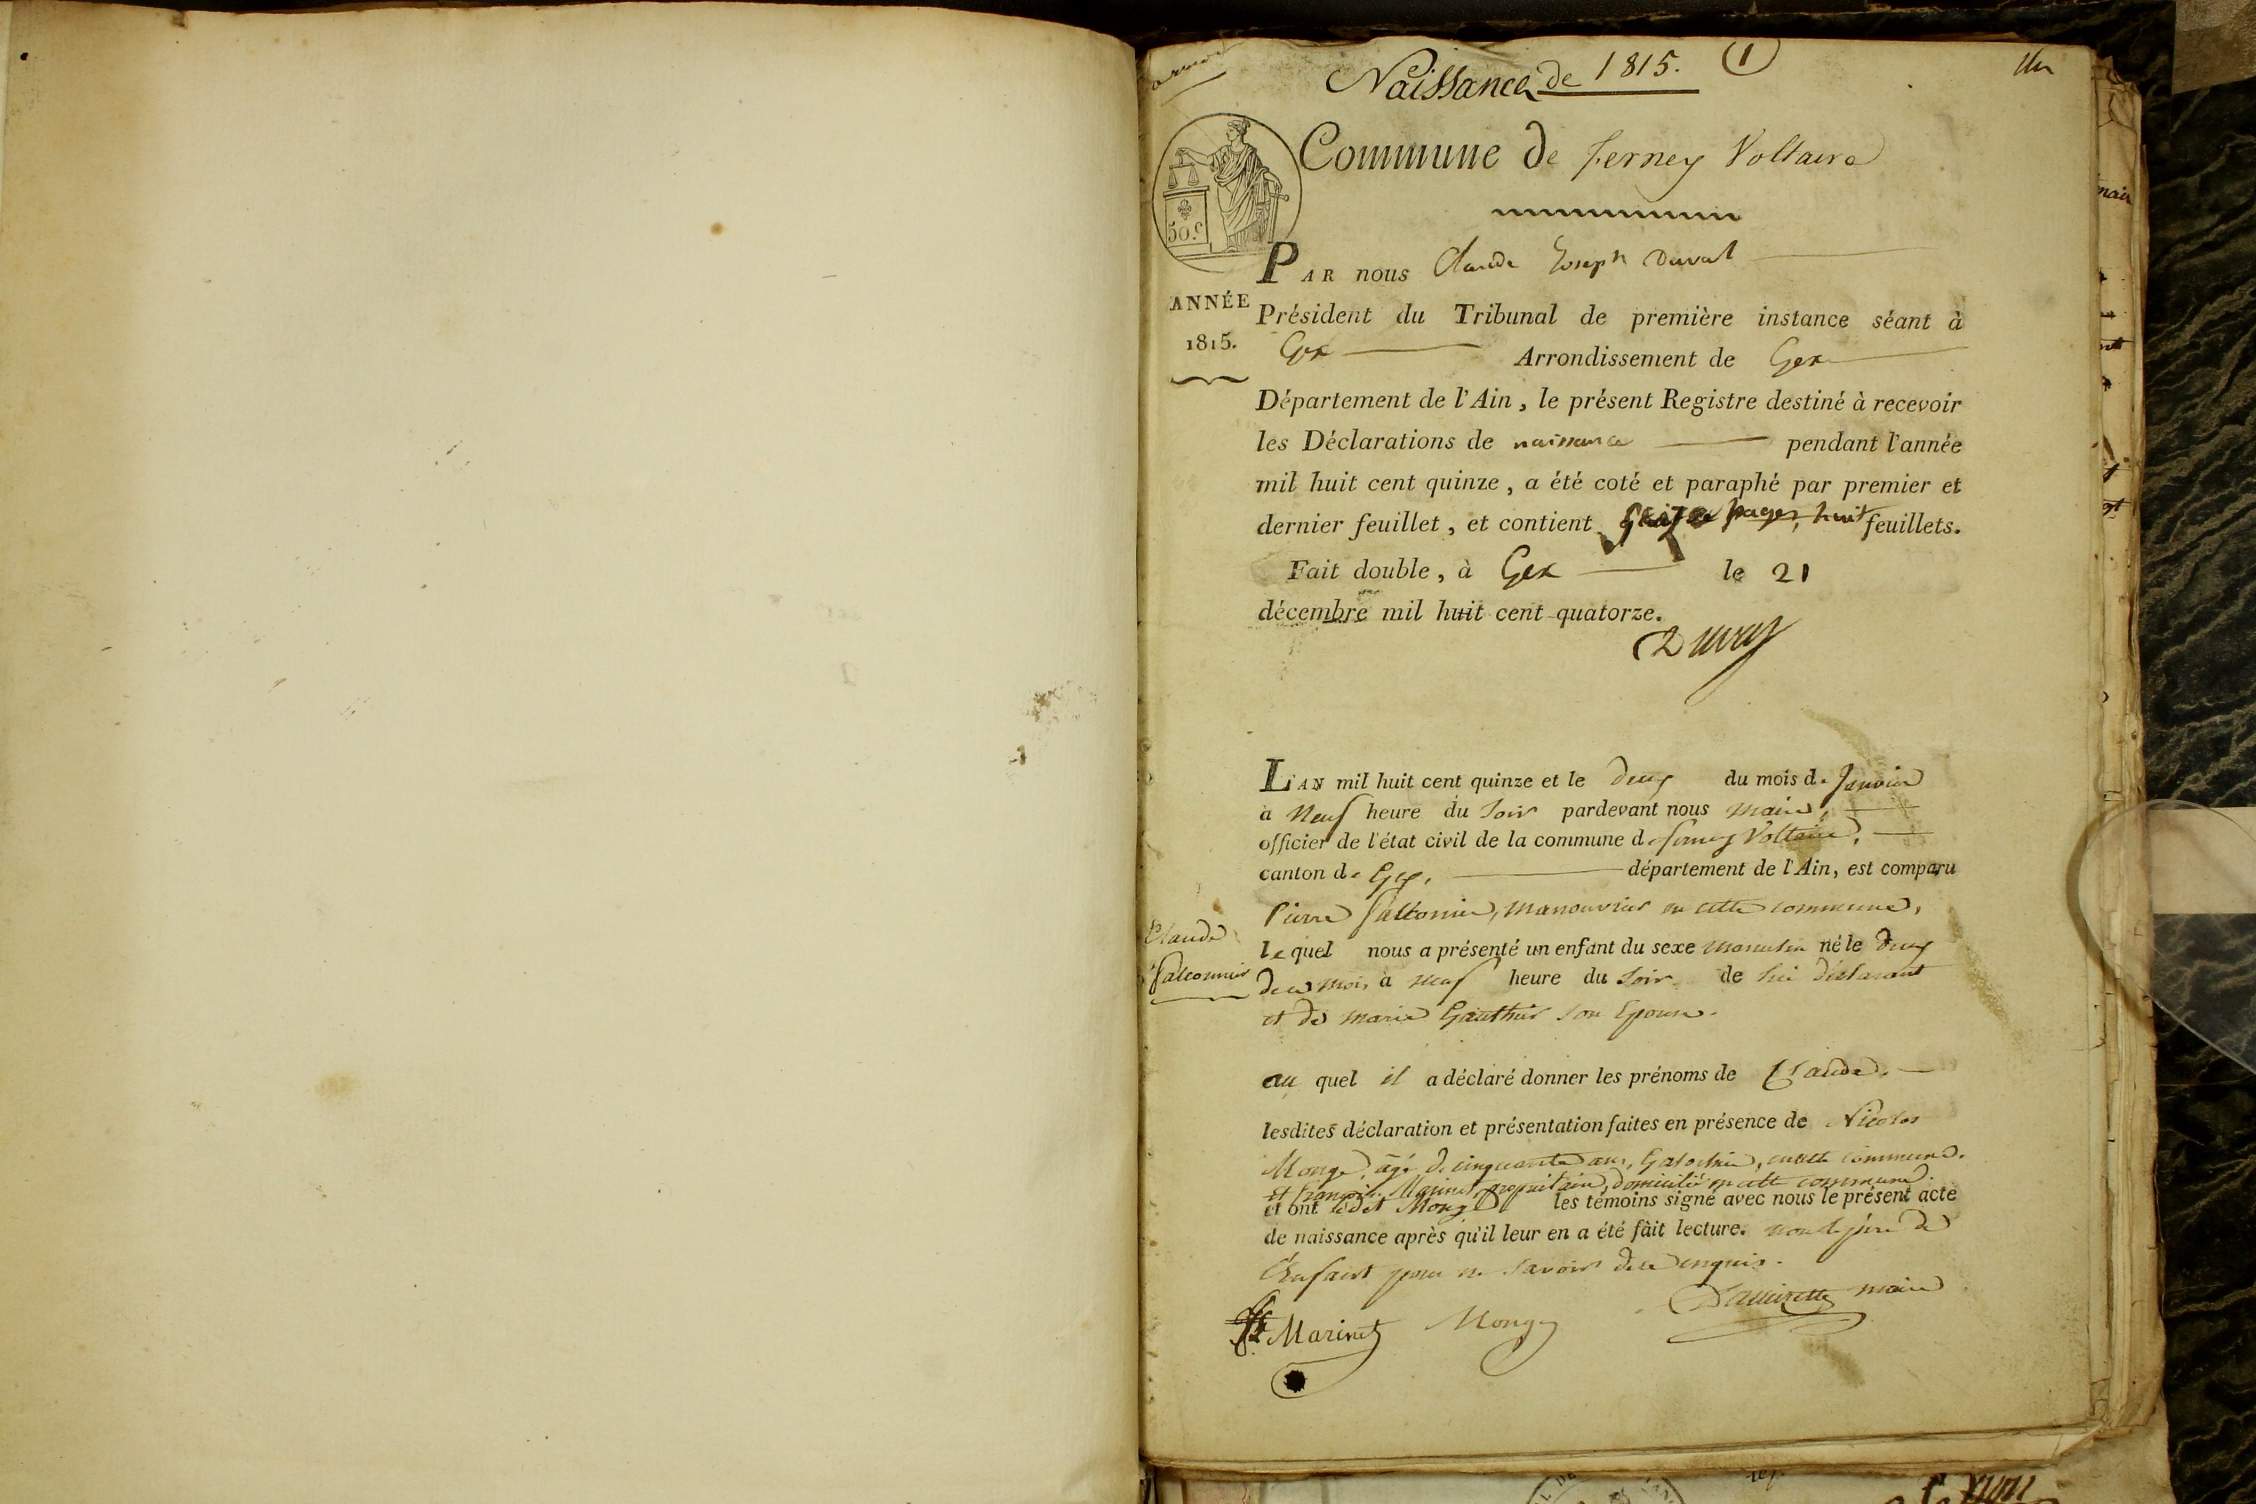 Naissance de 1815. 1
Commune de ferney Voltaire
50. C
PAR nous Claude Joseph Duval
ANNÉE
1815.
Président du Tribunal de première instance séant à
Gex Arrondissement de Gex
Département de l'Ain, le présent Registre destiné à recevoir
les Déclarations de naissance pendant l'année
mil huit cent quinze, a été coté et paraphé par premier et
dernier feuillet, et contient Seize pages, huit feuillets.
Fait double, à Gex le 21
décembre mil huit cent quatorze.
Duval
L'AN mil huit cent quinze et le deux du mois de Janvier
à Neuf heure du Soir pardevant nous maire,
officier de l'état civil de la commune de ferney Voltaire,
canton de Gex, département de l'Ain, est comparu
Pierre falconnier, manouvrier en cette commune,
Claude
falconnier
le quel nous a présenté un enfant du sexe masculin né le deux
de ce mois à neuf heure du Soir de lui déclarant
et de marie Gauthier son Epouse.
au quel il a déclaré donner les prénoms de Claude.
lesdites déclaration et présentation faites en présence de Nicolas
Monge, âgé de cinquante ans, en cette commune.
et françois Marinet propriétaire, domicilié en cette commune.
et ont ledit Monge les témoins signé avec nous le présent acte
de naissance après qu'il leur en a été fait lecture. non le père de
l'Enfant pour ne savoir de ce enquis.
Marinet Monge maire